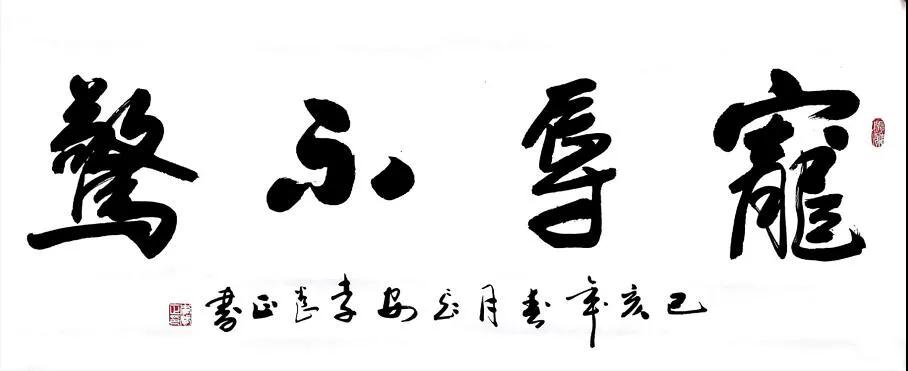 寵辱不驚
己亥年春月安李正書